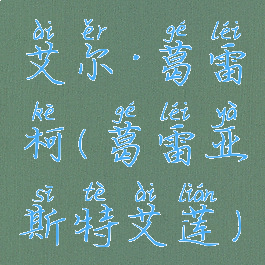 ài ěr gé léi
艾尔·葛雷
kē gé léi yà
柯(葛雷亚
sī tè ài lián
斯特艾莲)